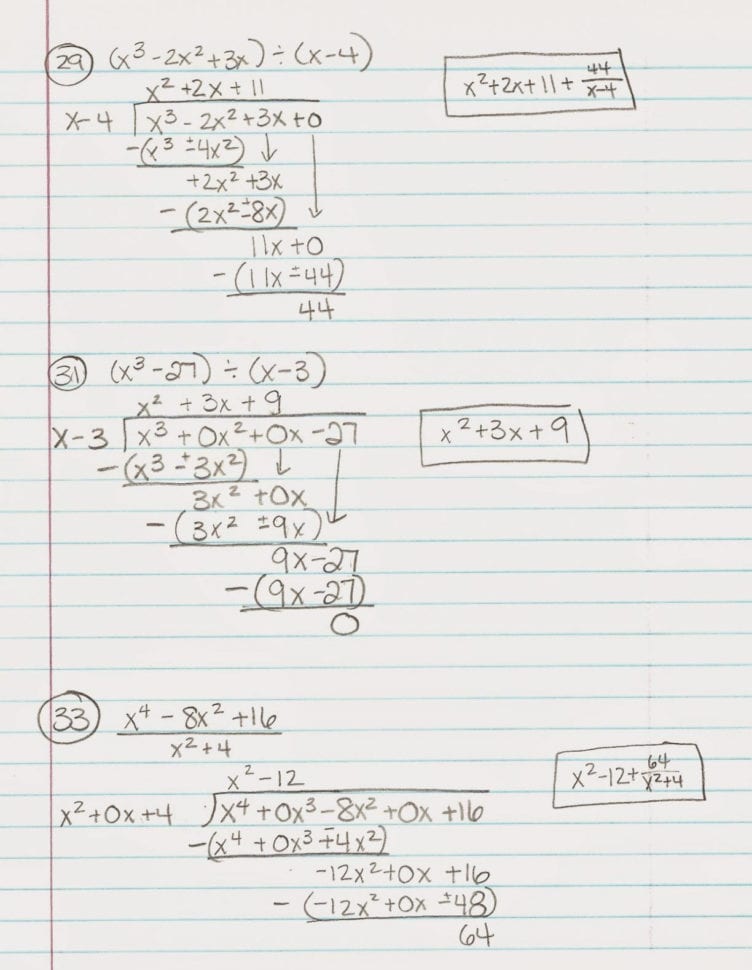 29 (x³ - 2x² + 3x) ÷ (x-4)
x² + 2x + 11
x² + 2x + 11 + 44/(x-4)
x-4 x³ - 2x² + 3x + 0
-(x³ ∓ 4x²)
+2x² + 3x
-(2x² ∓ 8x)
11x + 0
-(11x ∓ 44)
44
31 (x³ - 27) ÷ (x-3)
x² + 3x + 9
x-3 x³ + 0x² + 0x - 27
x² + 3x + 9
-(x³ ∓ 3x²)
3x² + 0x
-(3x² ± 9x)
9x - 27
-(9x - 27)
0
33 x⁴ - 8x² + 16
x² + 4
x² - 12
x² - 12 + 64/(x²+4)
x² + 0x + 4 x⁴ + 0x³ - 8x² + 0x + 16
-(x⁴ + 0x³ ∓ 4x²)
-12x² + 0x + 16
-(-12x² + 0x ± 48)
64